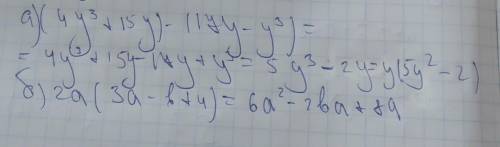 а) (4y³ + 15y) - (17y - y³) =
= 4y³ + 15y - 17y + y³ = 5y³ - 2y = y(5y² - 2)
б) 2a (3a - b + 4) = 6a² - 2ba + 8a